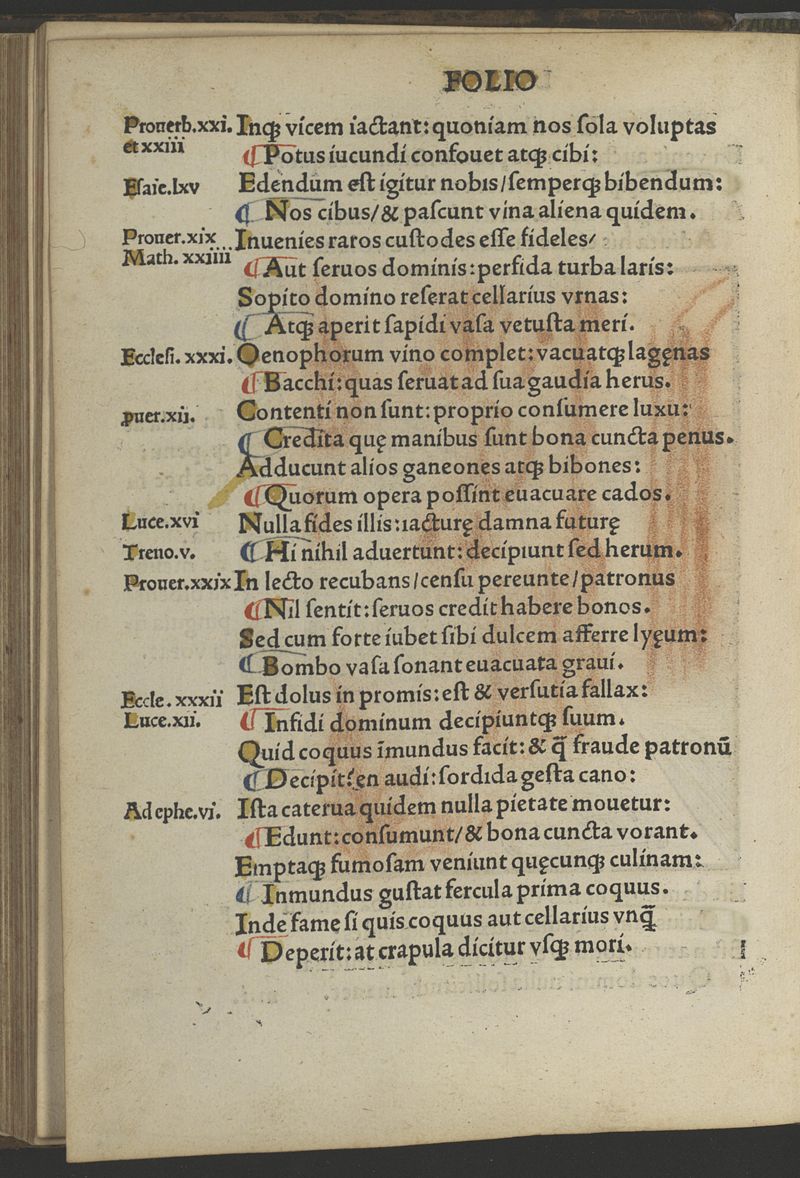 FOLIO
Prouerb.xxi. Inqꝫ vicem iactant: quoniam nos ſola voluptas
et xxiii ¶ Potus iucundi confouet atqꝫ cibi:
Eſaie.lxv Edendum eſt igitur nobis/ſemperqꝫ bibendum:
¶ Nos cibus/& paſcunt vina aliena quidem.
Prouer.xix Inuenies raros cuſtodes eſſe fideles/
Math. xxiiii ¶ Aut ſeruos dominis: perfida turba laris:
Sopito domino reſerat cellarius vrnas:
¶ Atqꝫ aperit ſapidi vaſa vetuſta meri.
Eccleſi. xxxi. Oenophorum vino complet: vacuatqꝫ lagęnas
¶ Bacchi: quas ſeruat ad ſua gaudia herus.
ꝓuer.xij. Contenti non ſunt: proprio conſumere luxu:
¶ Credita quę manibus ſunt bona cuncta penus.
Adducunt alios ganeones atqꝫ bibones:
¶ Quorum opera poſſint euacuare cados.
Luce.xvi Nulla fides illis: iacturę damna futurę
Treno.v. ¶ Hi nihil aduertunt: decipiunt ſed herum.
Prouer.xxix In lecto recubans/cenſu pereunte/patronus
¶ Nil ſentit: ſeruos credit habere bonos.
Sed cum forte iubet ſibi dulcem afferre lyęum:
¶ Bombo vaſa ſonant euacuata graui.
Eccle. xxxii Eſt dolus in promis: eſt & verſutia fallax:
Luce.xii. ¶ Infidi dominum decipiuntqꝫ ſuum.
Quid coquus īmundus facit: & q̃ fraude patronū
¶ Decipit? en audi: ſordida geſta cano:
Ad ephe.vi. Iſta caterua quidem nulla pietate mouetur:
¶ Edunt: conſumunt/& bona cuncta vorant.
Emptaqꝫ fumoſam veniunt quęcunqꝫ culinam:
¶ Inmundus guſtat fercula prima coquus.
Inde fame ſi quis coquus aut cellarius vnq̃
¶ Deperit: at crapula dicitur vſqꝫ mori.